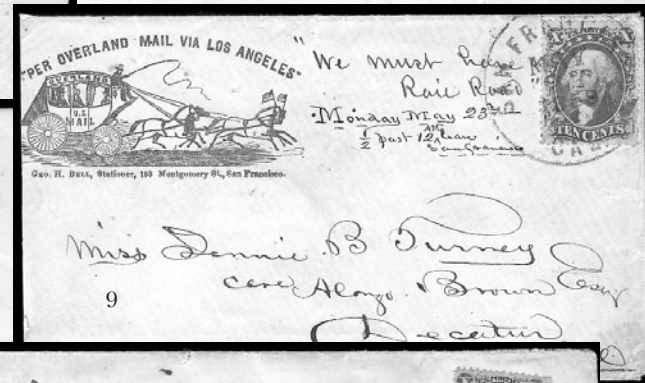 "PER OVERLAND MAIL VIA LOS ANGELES"
OVERLAND
U.S.
MAIL
GEO. H. BELL, Stationer, 153 Montgomery St., San Francisco.
"We must have
Rail Road"
Monday May 23rd
½ past 12 AM near
San Francisco
TEN CENTS
Miss Jennie B Turney
care Alonzo Brown Esq
9
Decatur